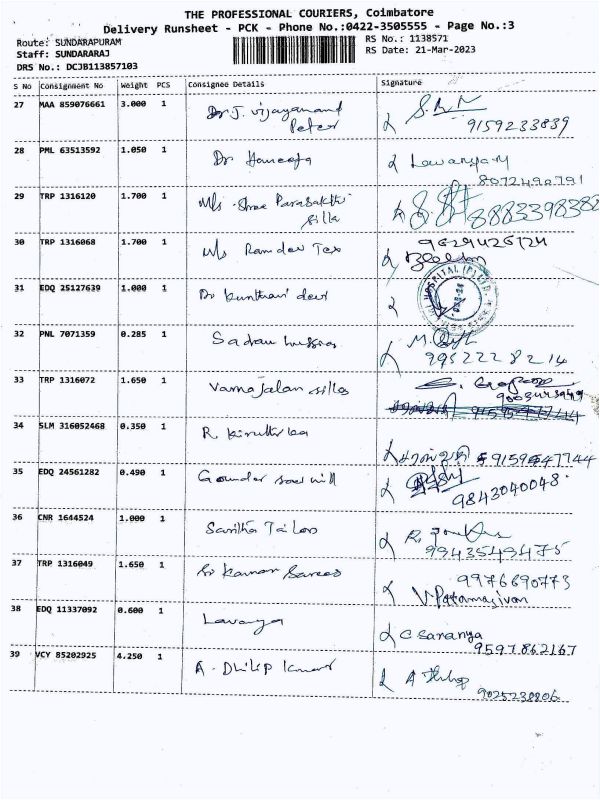 THE PROFESSIONAL COURIERS, Coimbatore
Delivery Runsheet - PCK - Phone No.:0422-3505555 - Page No.:3
Route: SUNDARAPURAM
RS No.: 1138571
Staff: SUNDARARAJ
RS Date: 21-Mar-2023
DRS No.: DCJB113857103
S No Consignment No Weight PCS Consignee Details Signature
27 MAA 859076661 3.000 1 Dr J. Vijayanand
Peter
9159233839
28 PML 63513592 1.050 1 Dr Haneefa
8072490791
29 TRP 1316120 1.700 1 M/s Shree Parasakthi
Silks
8883398388
30 TRP 1316068 1.700 1 M/s Ramdev Tex
9629426124
31 EDQ 25127639 1.000 1 Dr Kunthavi devi
HOSPITAL (P) LTD
32 PNL 7071359 0.285 1 Sadam hussain
9952228214
33 TRP 1316072 1.650 1 Varnajalam silks
34 SLM 316052468 0.350 1 R. Kiruthika
35 EDQ 24561282 0.490 1 Gounder saw mill
9843040048
36 CNR 1644524 1.000 1 Saritha Tailors
9943549475
37 TRP 1316049 1.650 1 Sri Kumaran Sarees
9976690773
38 EDQ 11337092 0.600 1 Lavanya
C Saranya
9597862167
39 VCY 85202925 4.250 1 A. Dhilip kumar
A Dhilip
9025230806